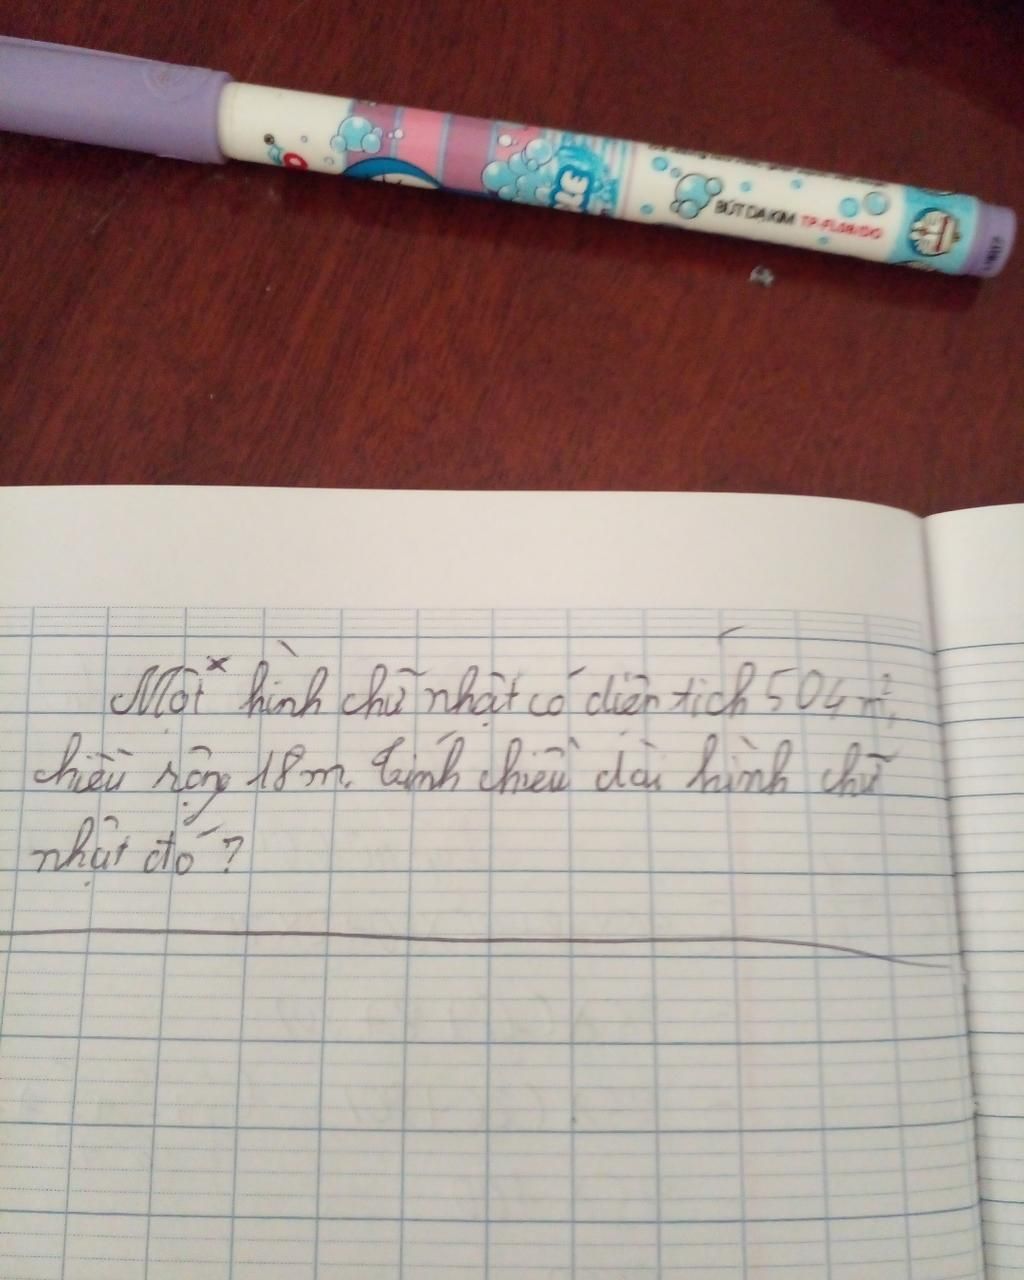 BÚT DẠ KIM TP-FL08/DO
Một hình chữ nhật có diện tích 504 m²,
chiều rộng 18m. Tính chiều dài hình chữ
nhật đó ?